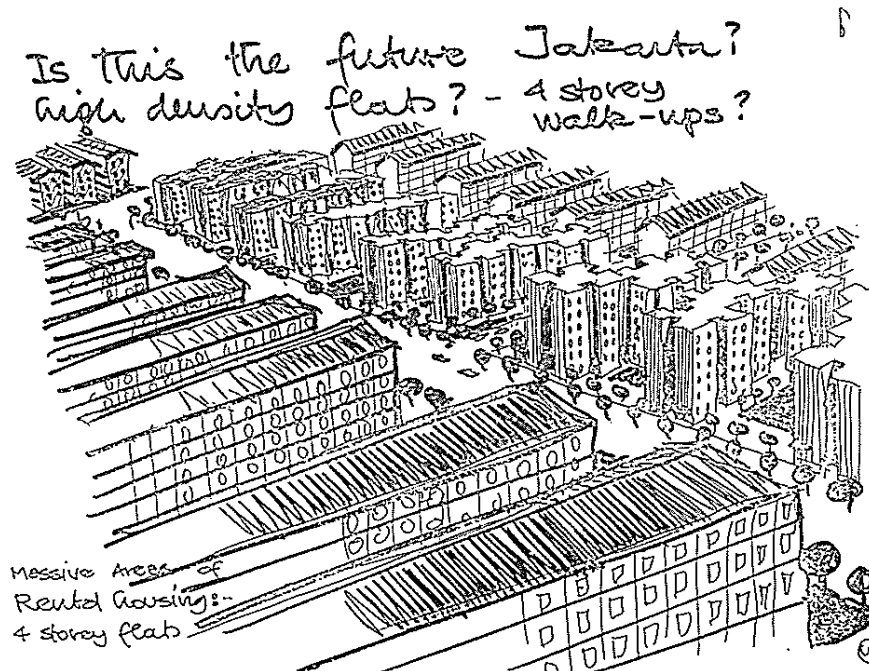 Is this the future Jakarta?
high density flats? - 4 storey
walk-ups?
Massive Areas of
Rental housing:-
4 storey flats